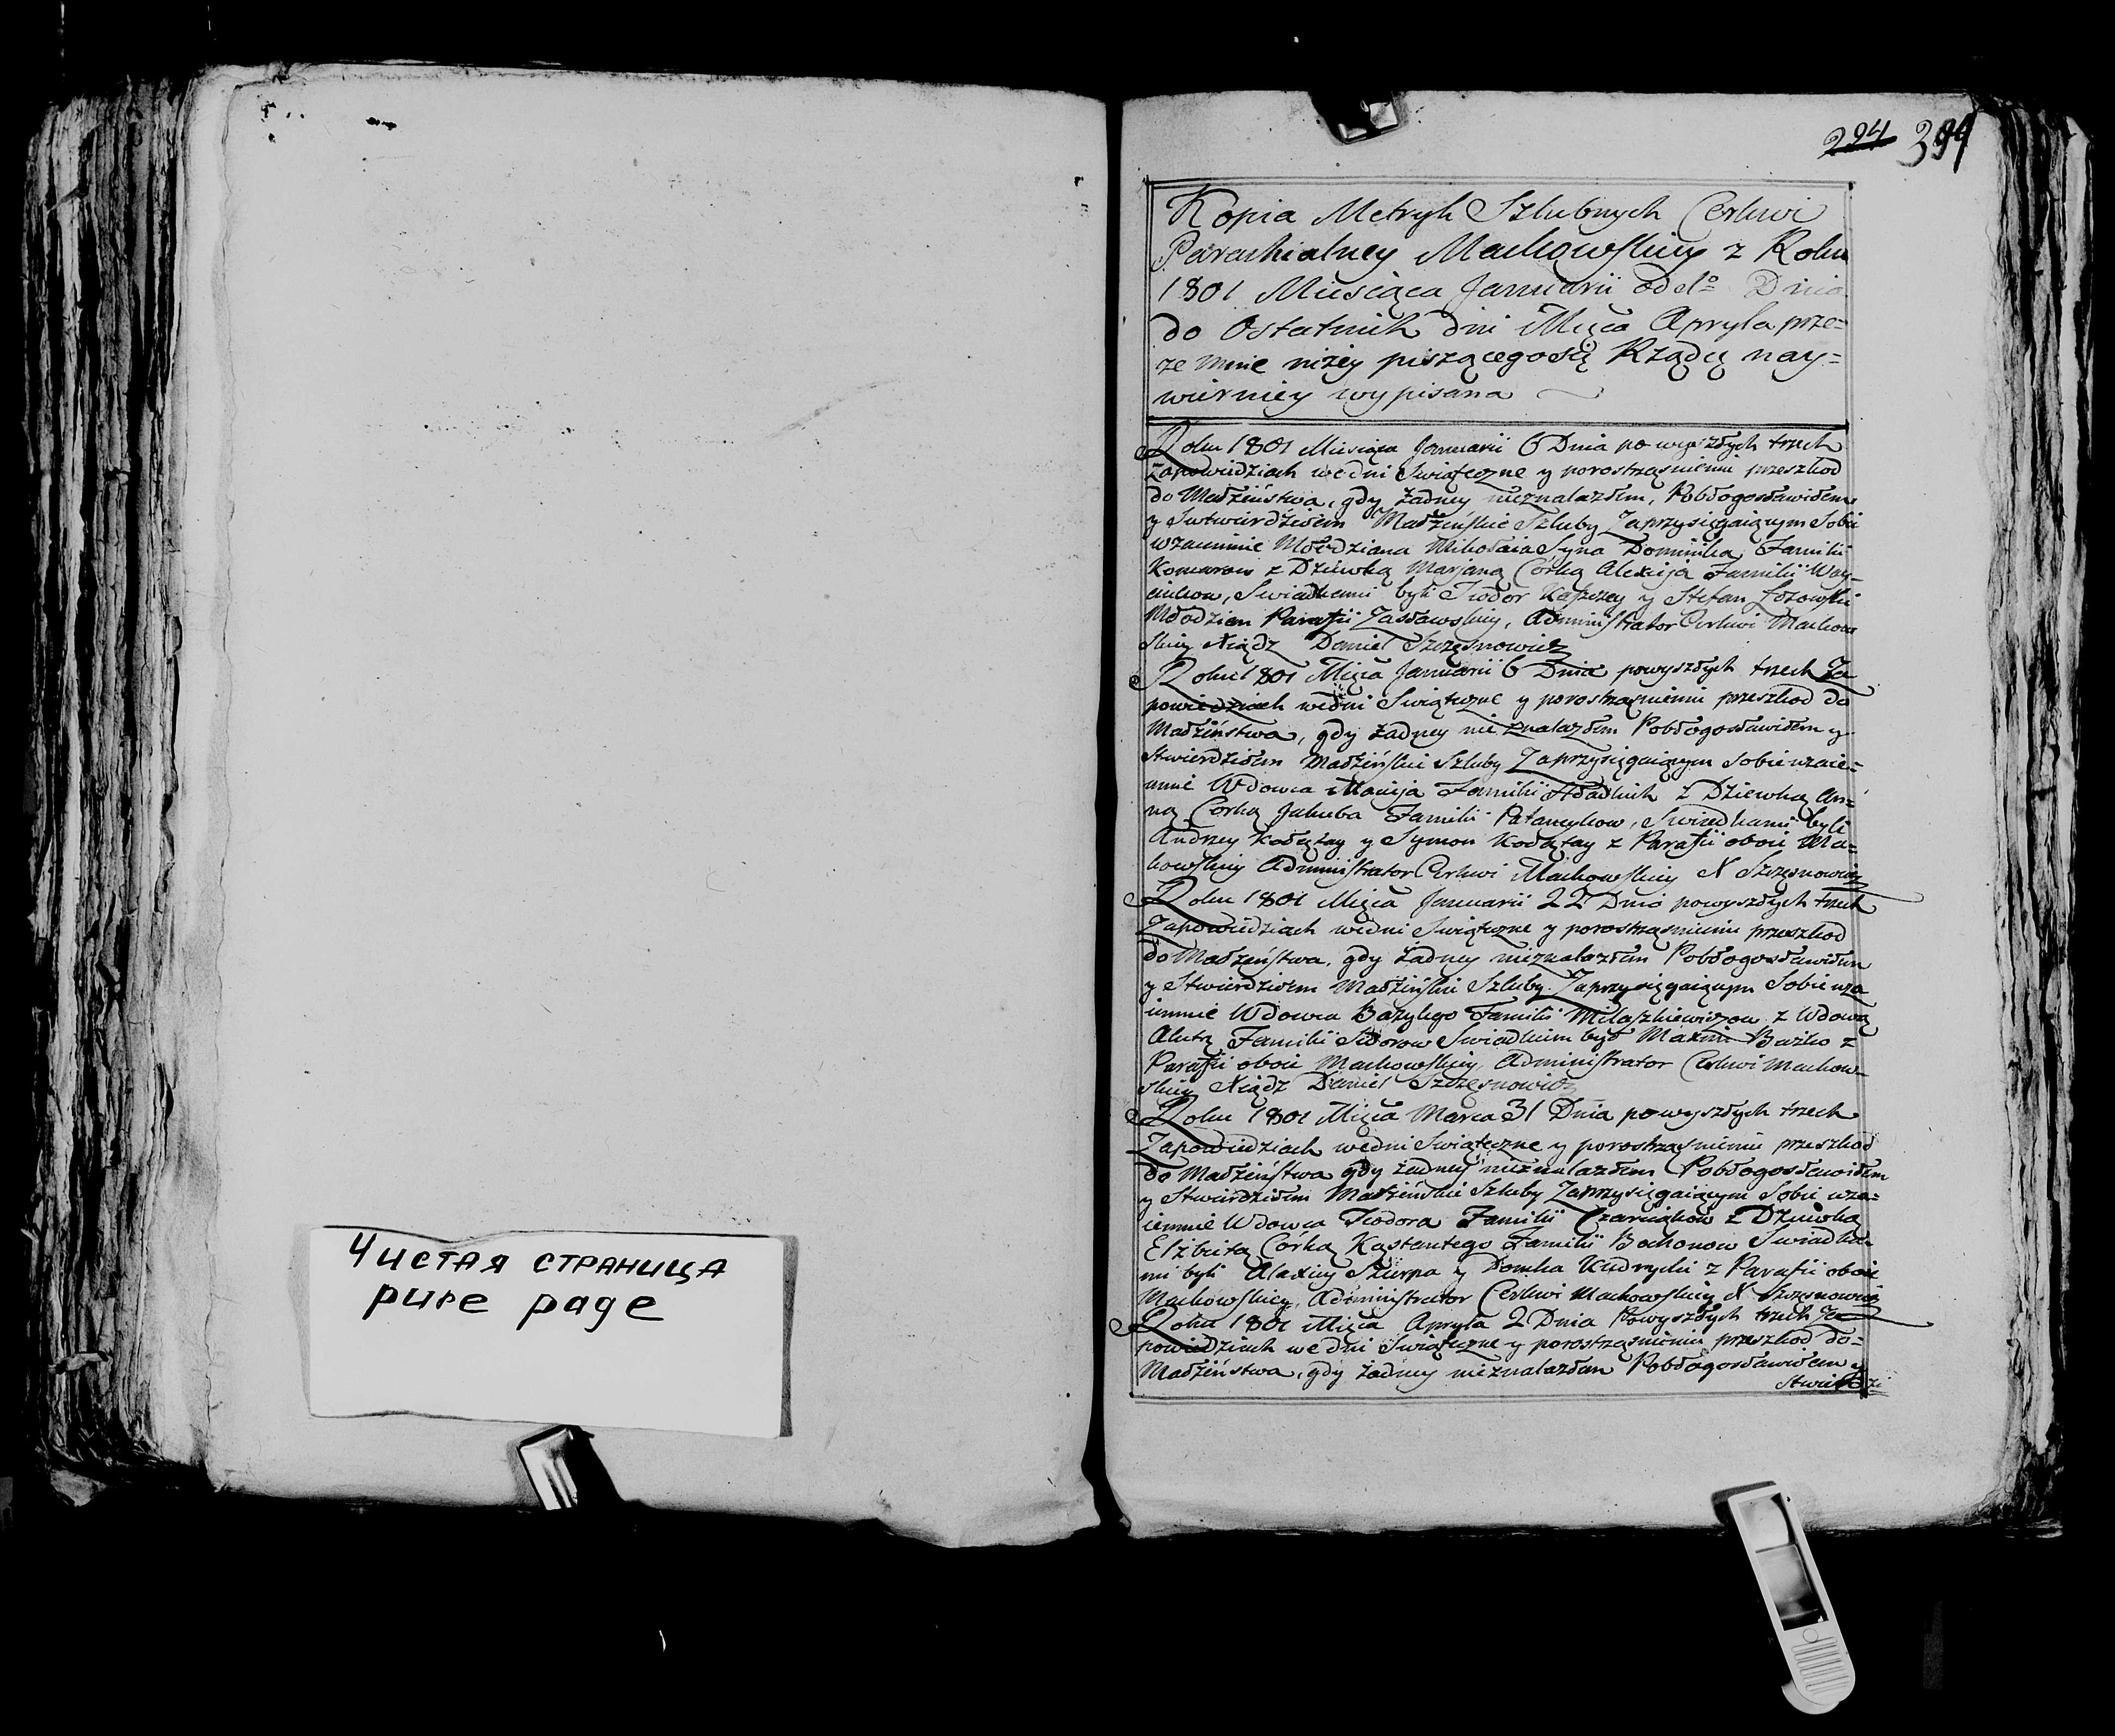 Чистая страница
pure page
294 394
Kopia Metryk Szlubnych Cerkwi
Parachialney Machowskiey z Roku
1801 Miesiąca Januarii od 1º Dnia
do Ostatnich dni Mięca Apryla prze=
ze mnie niżey piszącegosię Rządcę nay=
wierniey wypisana
Roku 1801 Miesiąca Januarii 6 Dnia po wyszłych trzech
Zapowiedziach wedni Swiąteczne y porostrząsnieniu przeszkod
do Małżeństwa, gdy żadney nieznalazłem, Pobłogosławiłem
y Stwierdziłem Małżeńskie Szluby Zaprzysięgaiącym Sobie
wzaiemnie Młodziana Mikołaia Syna Dominika Familii
Komarow z Dziewką Marjaną Córką Alexija Familii Woy-
Swiadkami byli Teodor y Stefan Łozowski
Młodzian Parafii Zasławskiey, Administrator Cerkwi Machow
skiey Xiądz Daniel Szczęsnowicz
Roku 1801 Mięca Januarii 6 Dnia powyszłych trzech Za
powiedziach wedni Swiąteczne y porostrząsnieniu przeszkod do
Małżeństwa, gdy żadney nieznalazłem Pobłogosławiłem y
Stwierdziłem Małżeńskie Szluby Zaprzysięgaiącym Sobie wzaie=
mnie Wdowca Macieja Familii Hładkich z Dziewką An=
ną Corką Jakuba Familii Patameykow, Swiedkami byli
Andrzey Kołłątay y Symon Kołłątay z Parafii oboie Ma=
howskiey Administrator Cerkwi Machowskiey X Szczęsnowicz
Roku 1801 Mięca Januarii 22 Dnia powyszłych trzech
Zapowiedziach wedni Swiąteczne y porostrząsnieniu przeszkod
do Małżeństwa, gdy żadney nieznalazłem Pobłogosławiłem
y Stwierdziłem Małżeńskie Szluby Zaprzysięgaiącym Sobie wza
iemnie Wdowca Bazylego Familii Milaszkiewiczow z Wdową
Familii Sidorow Swiadkiem był Maxim Bazko z
Parafii oboie Machowskiey, Administrator Cerkwi Machow-
skiey Xiądz Daniel Szczęsnowicz
Roku 1801 Mięca Marca 31 Dnia powyszłych trzech
Zapowiedziach wedni Swiąteczne y porostrząsnieniu przeszkod
do Małżeństwa gdy żadney nieznalazłem Pobłogosławiłem
y Stwierdziłem Małżeńskie Szluby Zaprzysięgaiącym Sobie wza=
iemnie Wdowca Teodora Familii z Dziewką
Elżbietą Córką Kąstantego Familii Bochonow Swiadka-
mi byli Alexiey y Domka z Parafii oboie
Machowskiey, Administrator Cerkwi Machowskiey X Szczęsnowicz
Roku 1801 Mięca Apryla 2 Dnia Powyszłych trzech Za
powiedziach wedni Swiąteczne y porostrząsnieniu przeszkod do=
Małżeństwa, gdy żadney nieznalazłem Pobłogosławiłem y
Stwierdzi